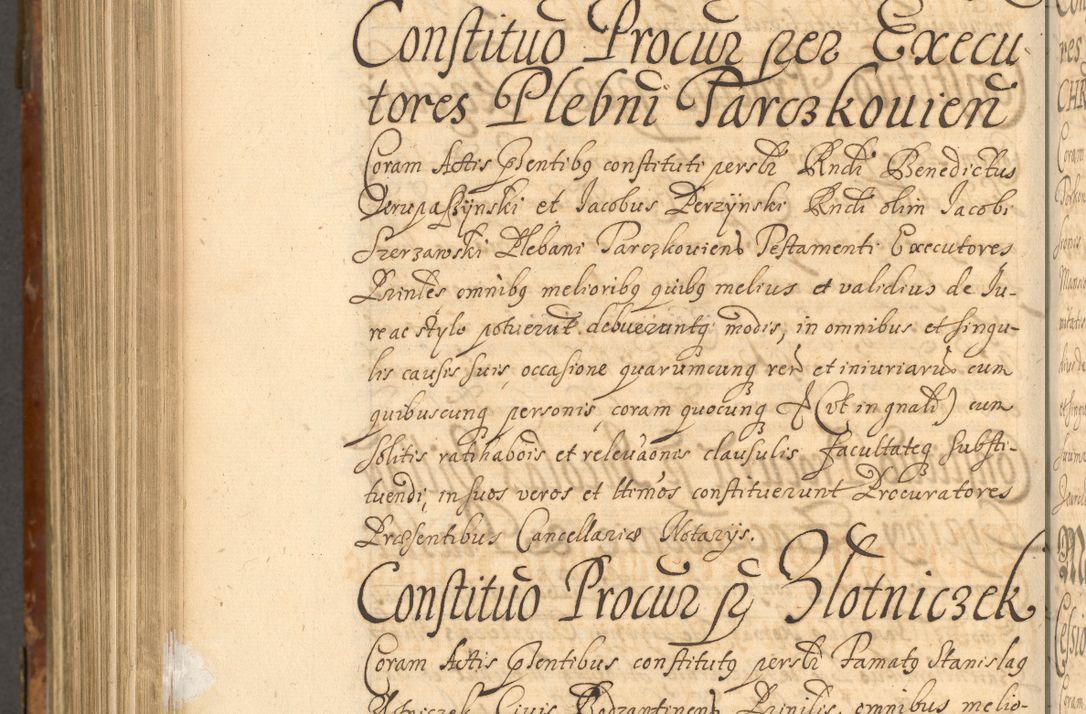 Constitũo Procur per Execu
tores Plebni Parczkouien
Coram Actis Pntibq constituti persłr Rndi Benedictus
et Jacobus Derzÿnski Rndi olim Jacobi
Szerzawski Plebani Parczkouiens Testamenti Executores
omnibq melioribq quibq melius et validius de Ju-
re ac stylo potuerut debueruntq modis, in omnibus et singu-
lis causis suis, occasione quarumcunq rerũ et iniuriarũ cum
quibuscunq personis, coram quocunq (vt in gnali) cum
solitis ratihabõis et releuãonis clausulis facultateq substi-
tuendi, in suos veros et lttimos constituerunt Procuratores
Præsentibus Cancellariæ Notarijs.
Constitũo Procur p Zlotniczek
Coram Actis Pntibus constitutq persłr Famatq Stanislaq
Civis omnibus melio-